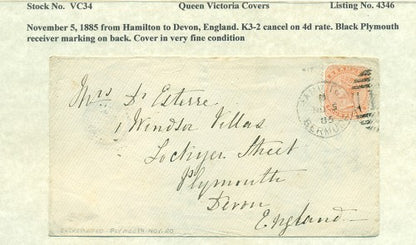 Stock No. VC34 Queen Victoria Covers Listing No. 4346
November 5, 1885 from Hamilton to Devon, England. K3-2 cancel on 4d rate. Black Plymouth
receiver marking on back. Cover in very fine condition
HAMILTON
NO 5
85
BERMUDA
1
Mrs D'Esterre
1 Windsor Villas
Lockyer Street
Plymouth
Devon
England
PLYMOUTH NOV. 20